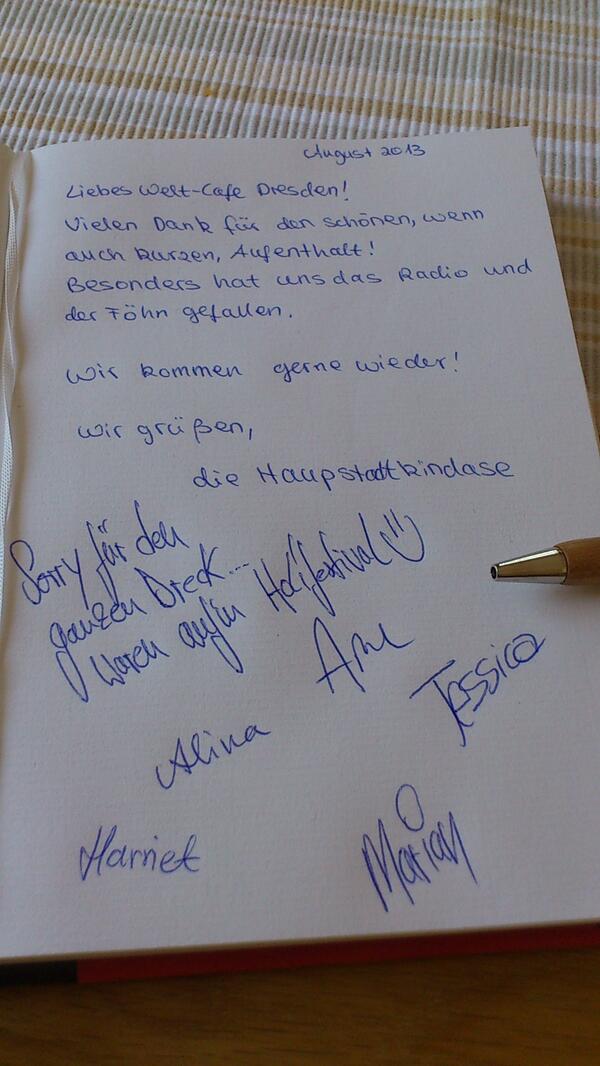 August 2013
Liebes Welt-Cafe Dresden!
Vielen Dank für den schönen, wenn
auch kurzen, Aufenthalt!
Besonders hat uns das Radio und
der Föhn gefallen.
Wir kommen gerne wieder!
Wir grüßen,
die Haupstadtkindase
Sorry für den
ganzen Dreck...
Waren auf'm Holifestival
Jessica
Alina
Harriet
Marian